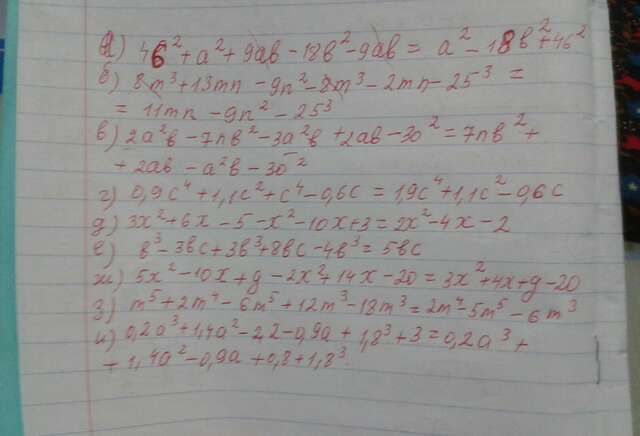 а) 4в² + а² + 9ав - 18в² - 9ав = а² - 18в² + 4в²
б) 8m³ + 13mn - 9n² - 8m³ - 2mn - 25³ =
= 11mn - 9n² - 25³
в) 2а²в - 7пв² - 3а²в + 2ав - 30² = 7пв² +
+ 2ав - а²в - 30²
г) 0,9с⁴ + 1,1с² + с⁴ - 0,6с = 1,9с⁴ + 1,1с² - 0,6с
д) 3х² + 6х - 5 - х² - 10х + 3 = 2х² - 4х - 2
е) в³ - 3вс + 3в³ + 8вс - 4в³ = 5вс
ж) 5х² - 10х + g - 2х² + 14х - 20 = 3х² + 4х + g - 20
з) m⁵ + 2m⁴ - 6m⁵ + 12m³ - 18m³ = 2m⁴ - 5m⁵ - 6m³
и) 0,2а³ + 1,4а² - 2,2 - 0,9а + 1,8³ + 3 = 0,2а³ +
+ 1,4а² - 0,9а + 0,8 + 1,8³